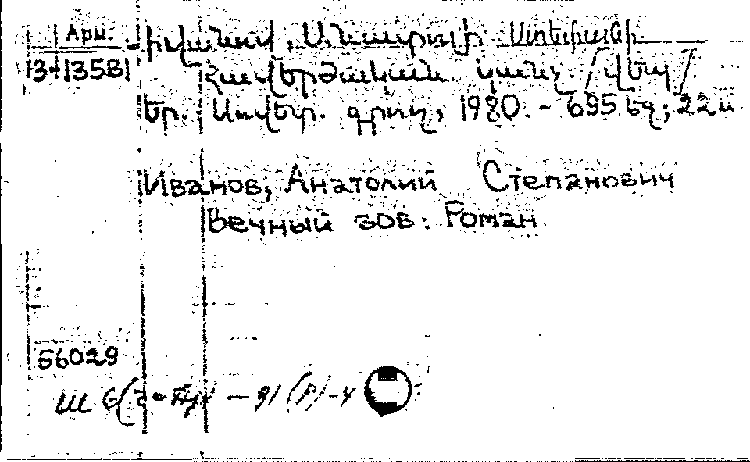 Арм.
Իվանով, Անատոլի Ստեփանի
3-13581
Հավերժական կանչ /վեպ/
Եր. Սովետ. գրող, 1980. - 695 էջ; 22 սմ
Иванов, Анатолий Степанович
Вечный зов: Роман
56029